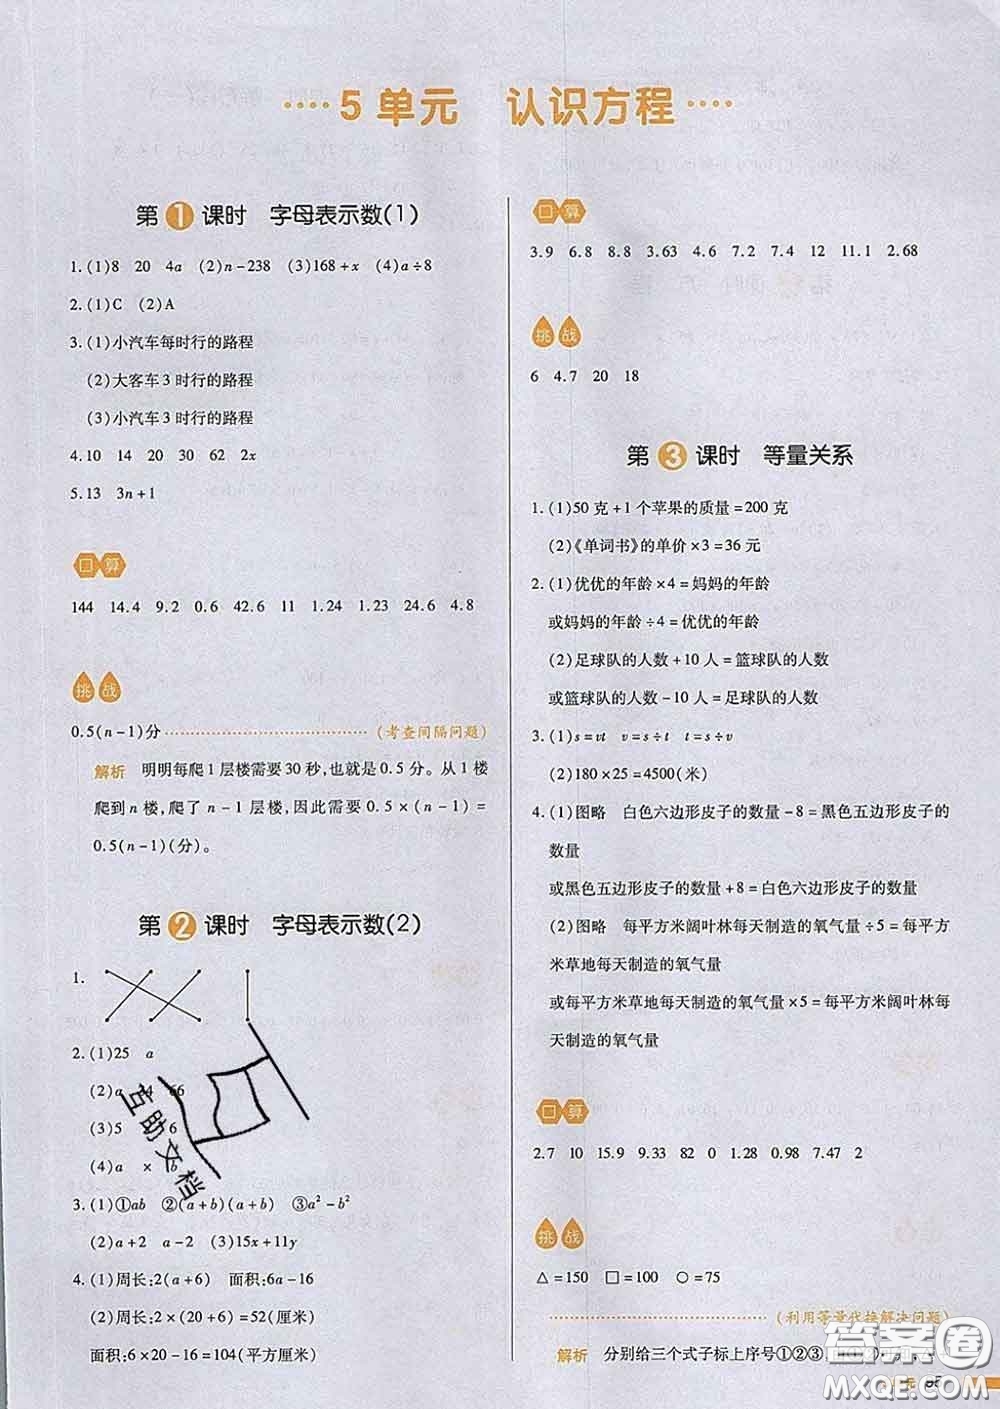 5 单元 认识方程
第1课时 字母表示数(1)
1.(1)8 20 4a (2)n-238 (3)168+x (4)a÷8
2.(1)C (2)A
3.(1)小汽车每时行的路程
(2)大客车3时行的路程
(3)小汽车3时行的路程
4.10 14 20 30 62 2x
5.13 3n+1
口算
144 14.4 9.2 0.6 42.6 11 1.24 1.23 24.6 4.8
挑战
0.5(n-1)分 (考查间隔问题)
解析 明明每爬1层楼需要30秒,也就是0.5分。从1楼
爬到n楼,爬了n-1层楼,因此需要0.5×(n-1)=
0.5(n-1)(分)。
第2课时 字母表示数(2)
1.
2.(1)25 a
(2)a 34 66
(3)5 6
(4)a × b
3.(1)①ab ②(a+b)(a+b) ③a²-b²
(2)a+2 a-2 (3)15x+11y
4.(1)周长:2(a+6) 面积:6a-16
(2)周长:2×(20+6)=52(厘米)
面积:6×20-16=104(平方厘米)
口算
3.9 6.8 8.8 3.63 4.6 7.2 7.4 12 11.1 2.68
挑战
6 4.7 20 18
第3课时 等量关系
1.(1)50克+1个苹果的质量=200克
(2)《单词书》的单价×3=36元
2.(1)优优的年龄×4=妈妈的年龄
或妈妈的年龄÷4=优优的年龄
(2)足球队的人数+10人=篮球队的人数
或篮球队的人数-10人=足球队的人数
3.(1)s=vt v=s÷t t=s÷v
(2)180×25=4500(米)
4.(1)图略 白色六边形皮子的数量-8=黑色五边形皮子的
数量
或黑色五边形皮子的数量+8=白色六边形皮子的数量
(2)图略 每平方米阔叶林每天制造的氧气量÷5=每平方
米草地每天制造的氧气量
或每平方米草地每天制造的氧气量×5=每平方米阔叶林每
天制造的氧气量
口算
2.7 10 15.9 9.33 82 0 1.28 0.98 7.47 2
挑战
△=150 □=100 ○=75
(利用等量代换解决问题)
解析 分别给三个式子标上序号①②③,
互助文档
答案圈
MXQE.COM